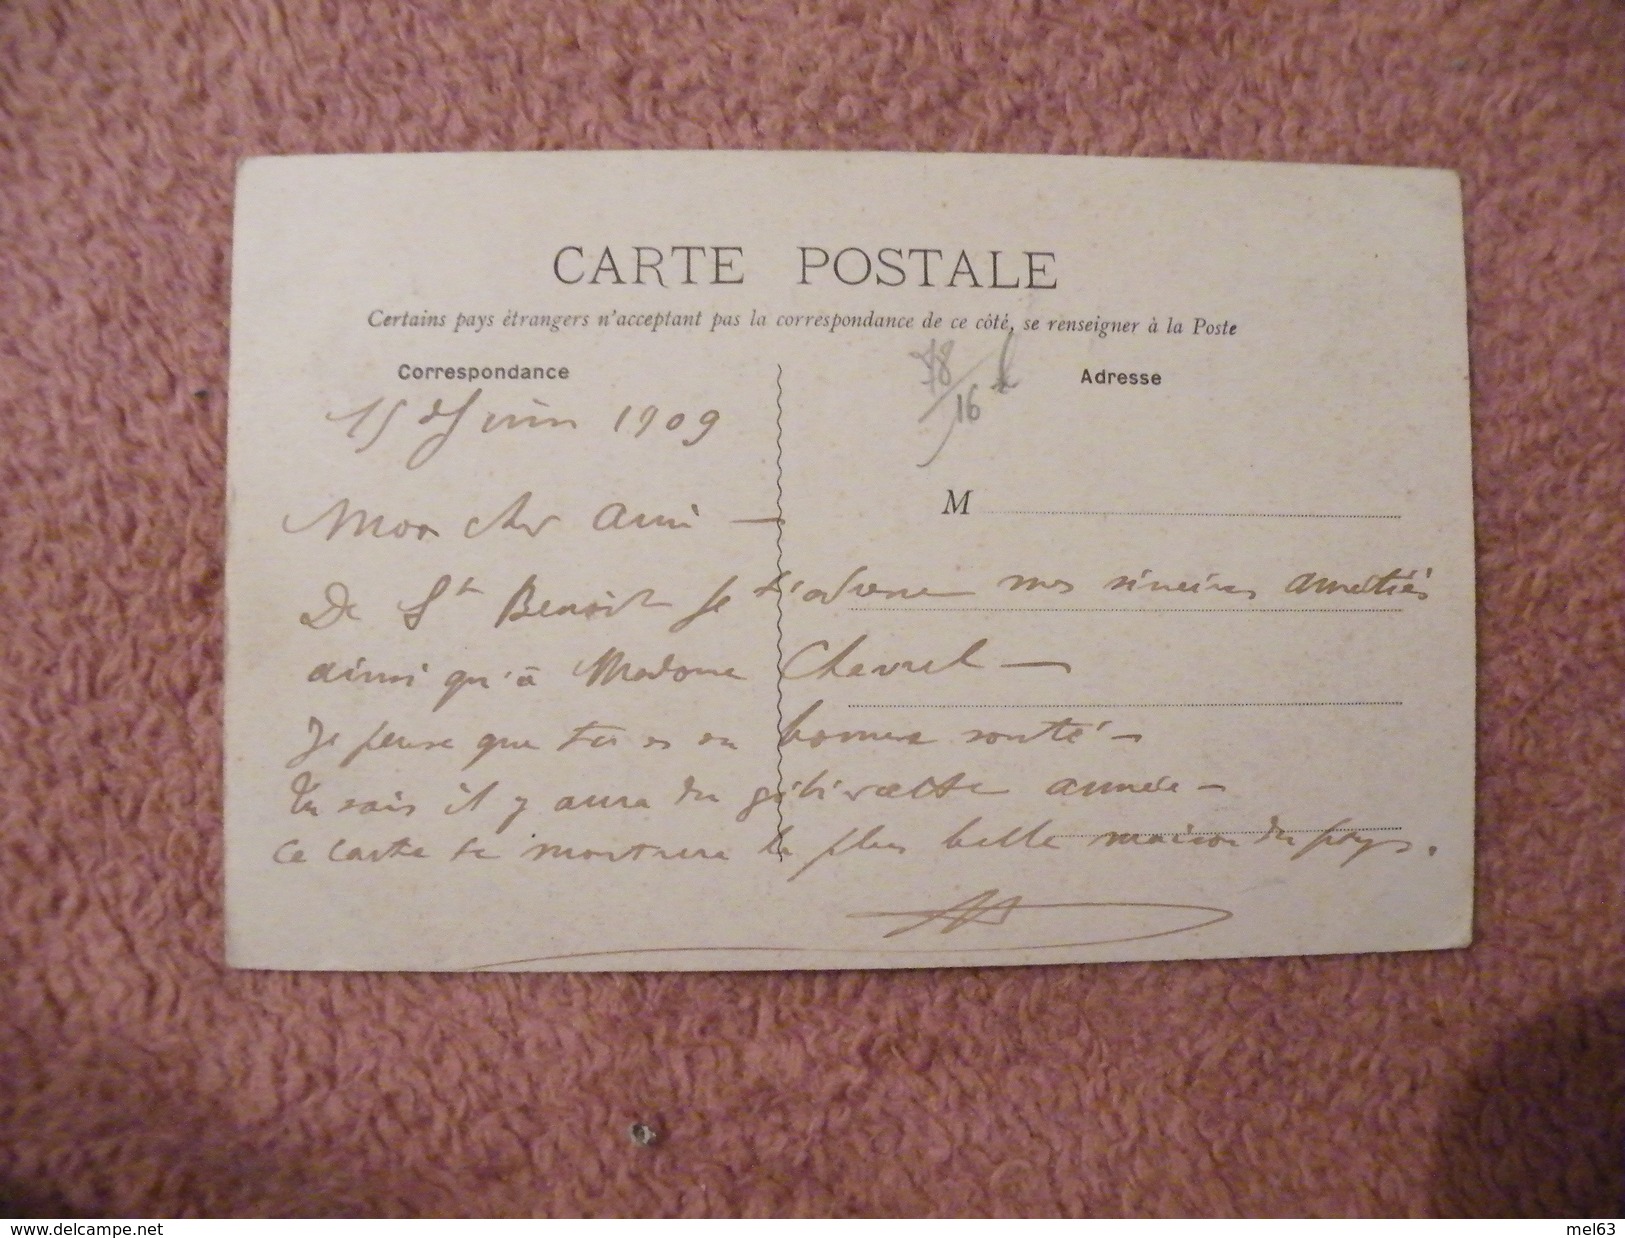 CARTE POSTALE
Certains pays étrangers n'acceptant pas la correspondance de ce côté, se renseigner à la Poste
Correspondance
Adresse
78
16
15 Juin 1909
M
Mon cher ami —
De St Benoit je t'adresse mes sincères amitiés
ainsi qu'à Madame Chavrel —
Je pense que tu es en bonne santé —
Tu sais il y aura du gibier cette année —
ce carte te montrera la plus belle maison du pays.
www.delcampe.net
mel63